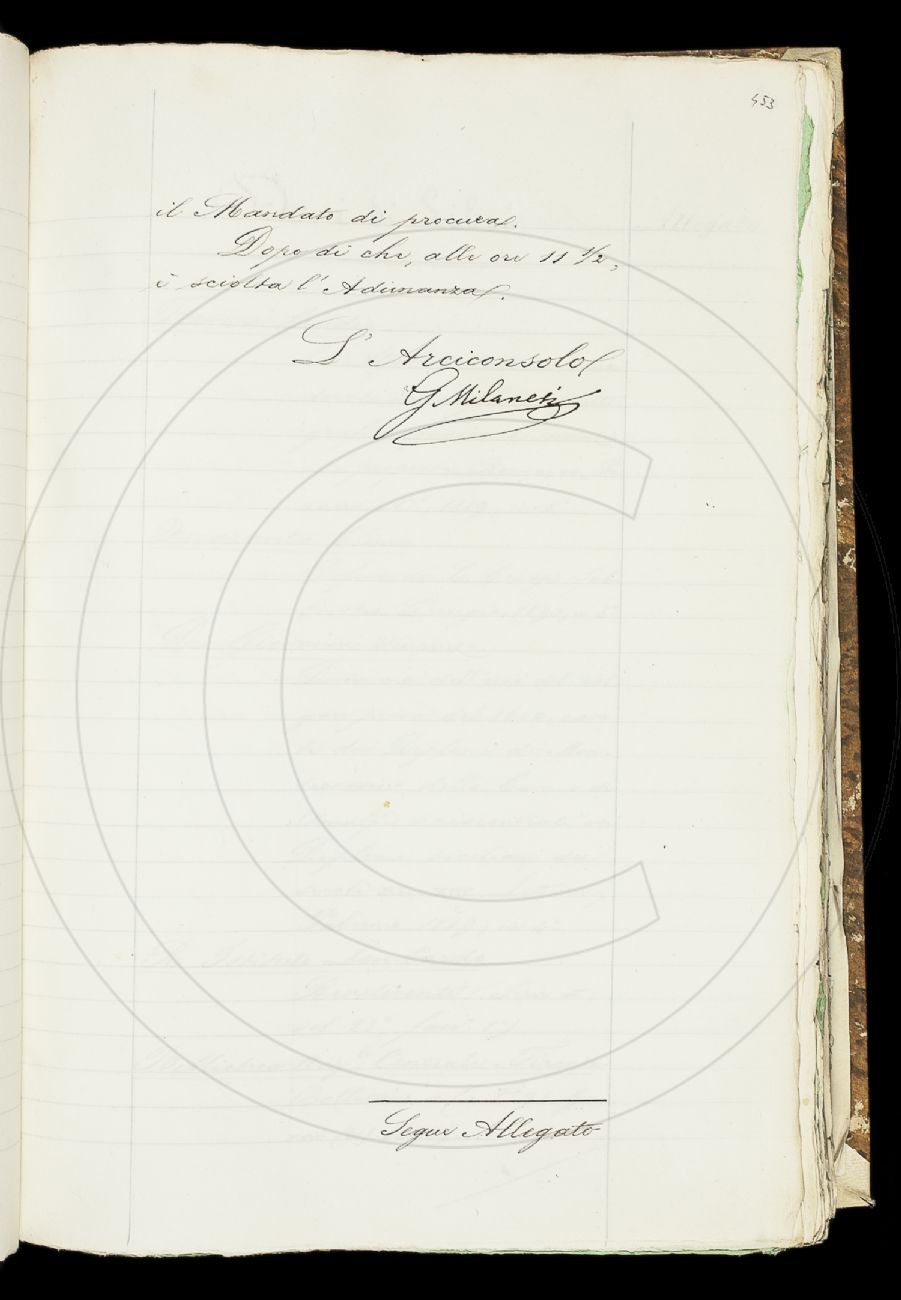 453
il Mandato di procura.
Dopo di che, alle ore 11 1/2,
è sciolta l'Adunanza.
L'Arciconsolo
G Milanesi
Segue Allegato